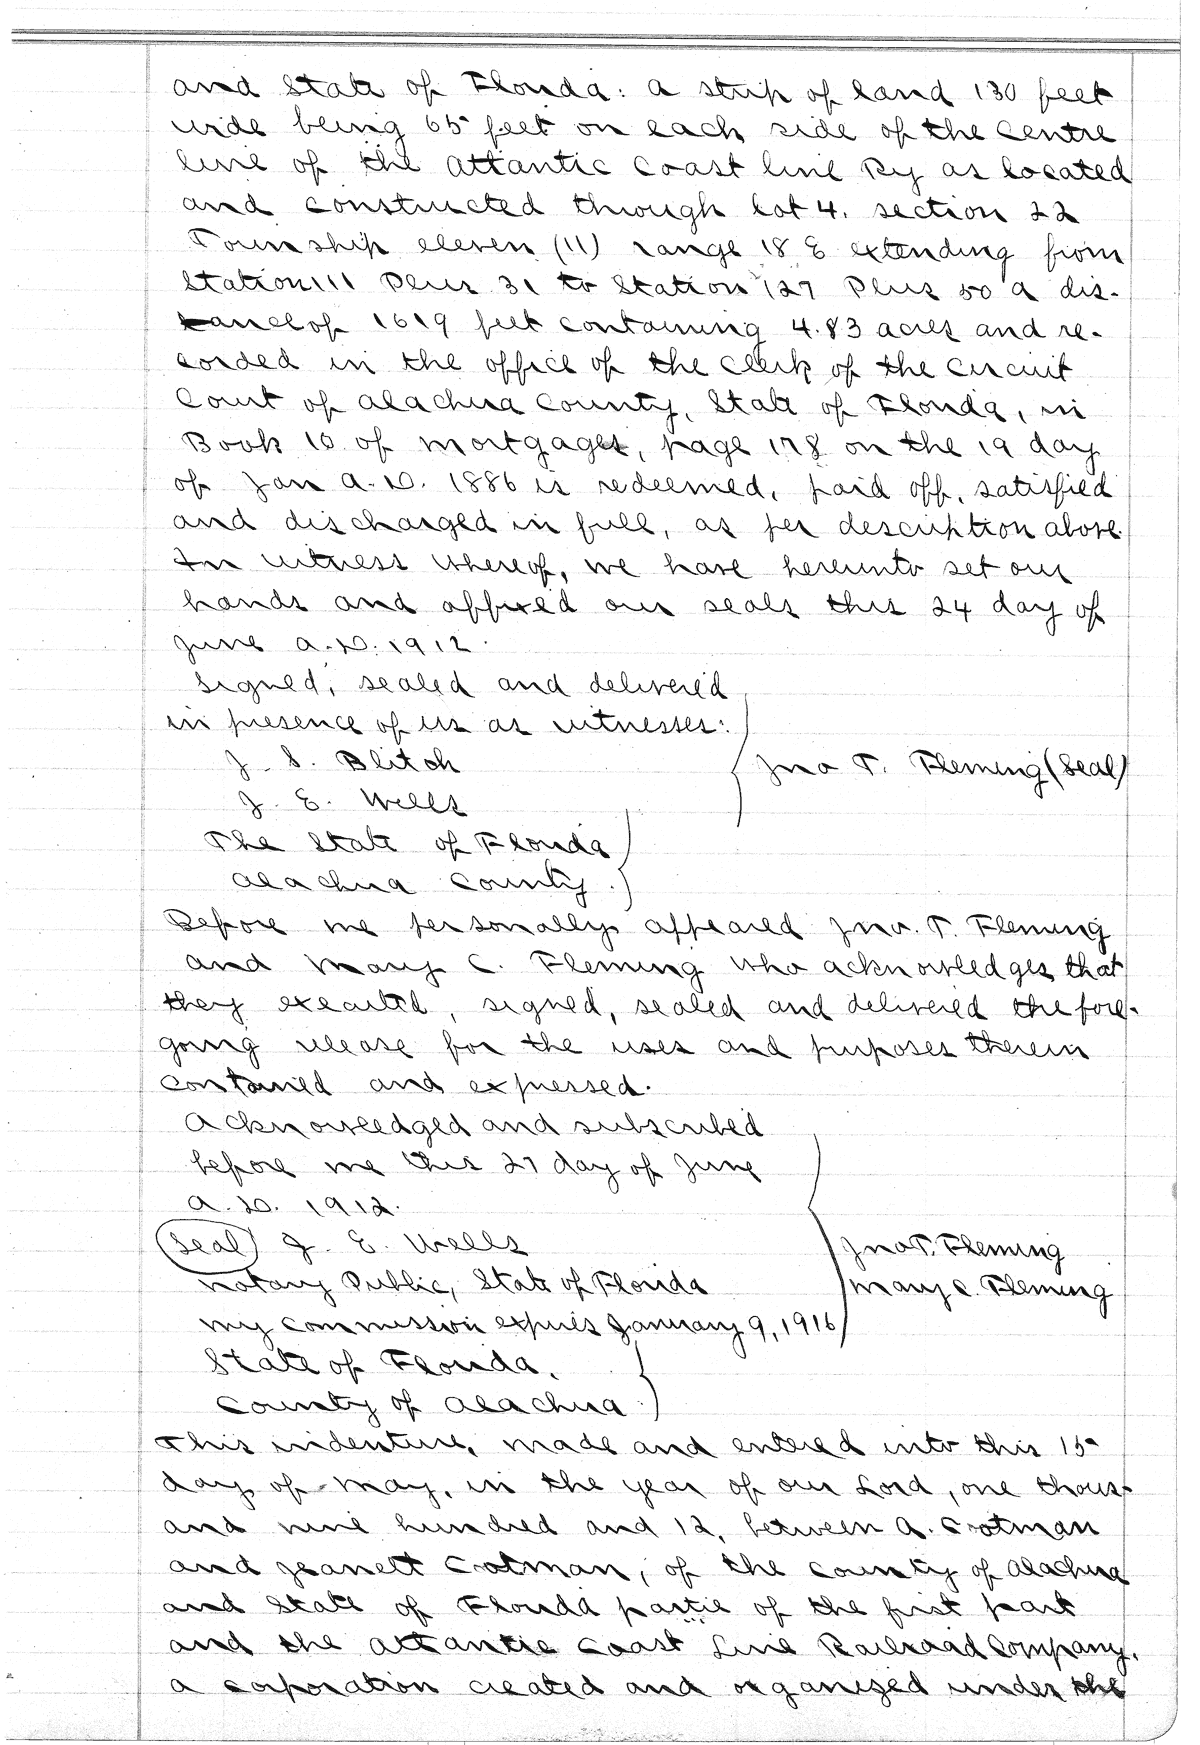 and State of Florida: a strip of land 130 feet
wide being 65 feet on each side of the centre
line of the Atlantic Coast line Ry as located
and constructed through Lot 4. section 22
Township eleven (11) range 18 E extending from
Station 111 Plus 31 to Station 127 Plus 50 a dis-
tance of 1619 feet containing 4.83 acres and re-
corded in the office of the Clerk of the Circuit
Court of Alachua County, State of Florida, in
Book 10 of mortgages, page 178 on the 19 day
of Jan A.D. 1886 is redeemed, paid off, satisfied
and discharged in full, as per description above.
In witness whereof, we have hereunto set our
hands and affixed our seals this 24 day of
June A.D. 1912.
Signed, sealed and delivered
in presence of us as witnesses:
J. S. Blitch
Jno T. Fleming (Seal)
J. E. Wells
The State of Florida
Alachua County.
Before me personally appeared Jno. T. Fleming
and Mary C. Fleming who acknowledges that
they executed, signed, sealed and delivered the fore-
going release for the uses and purposes therein
contained and expressed.
Acknowledged and subscribed
before me this 27 day of June
A.D. 1912.
(Seal) J. E. Wells
Jno T. Fleming
Notary Public, State of Florida
Mary C. Fleming
My commission expires January 9, 1916
State of Florida,
County of Alachua
This indenture, made and entered into this 15
day of May, in the year of our Lord, one thous-
and nine hundred and 12, between A. Crotman
and Jeanett Crotman, of the County of Alachua
and State of Florida partie of the first part
and the Atlantic Coast Line Railroad Company,
a corporation created and organized under the